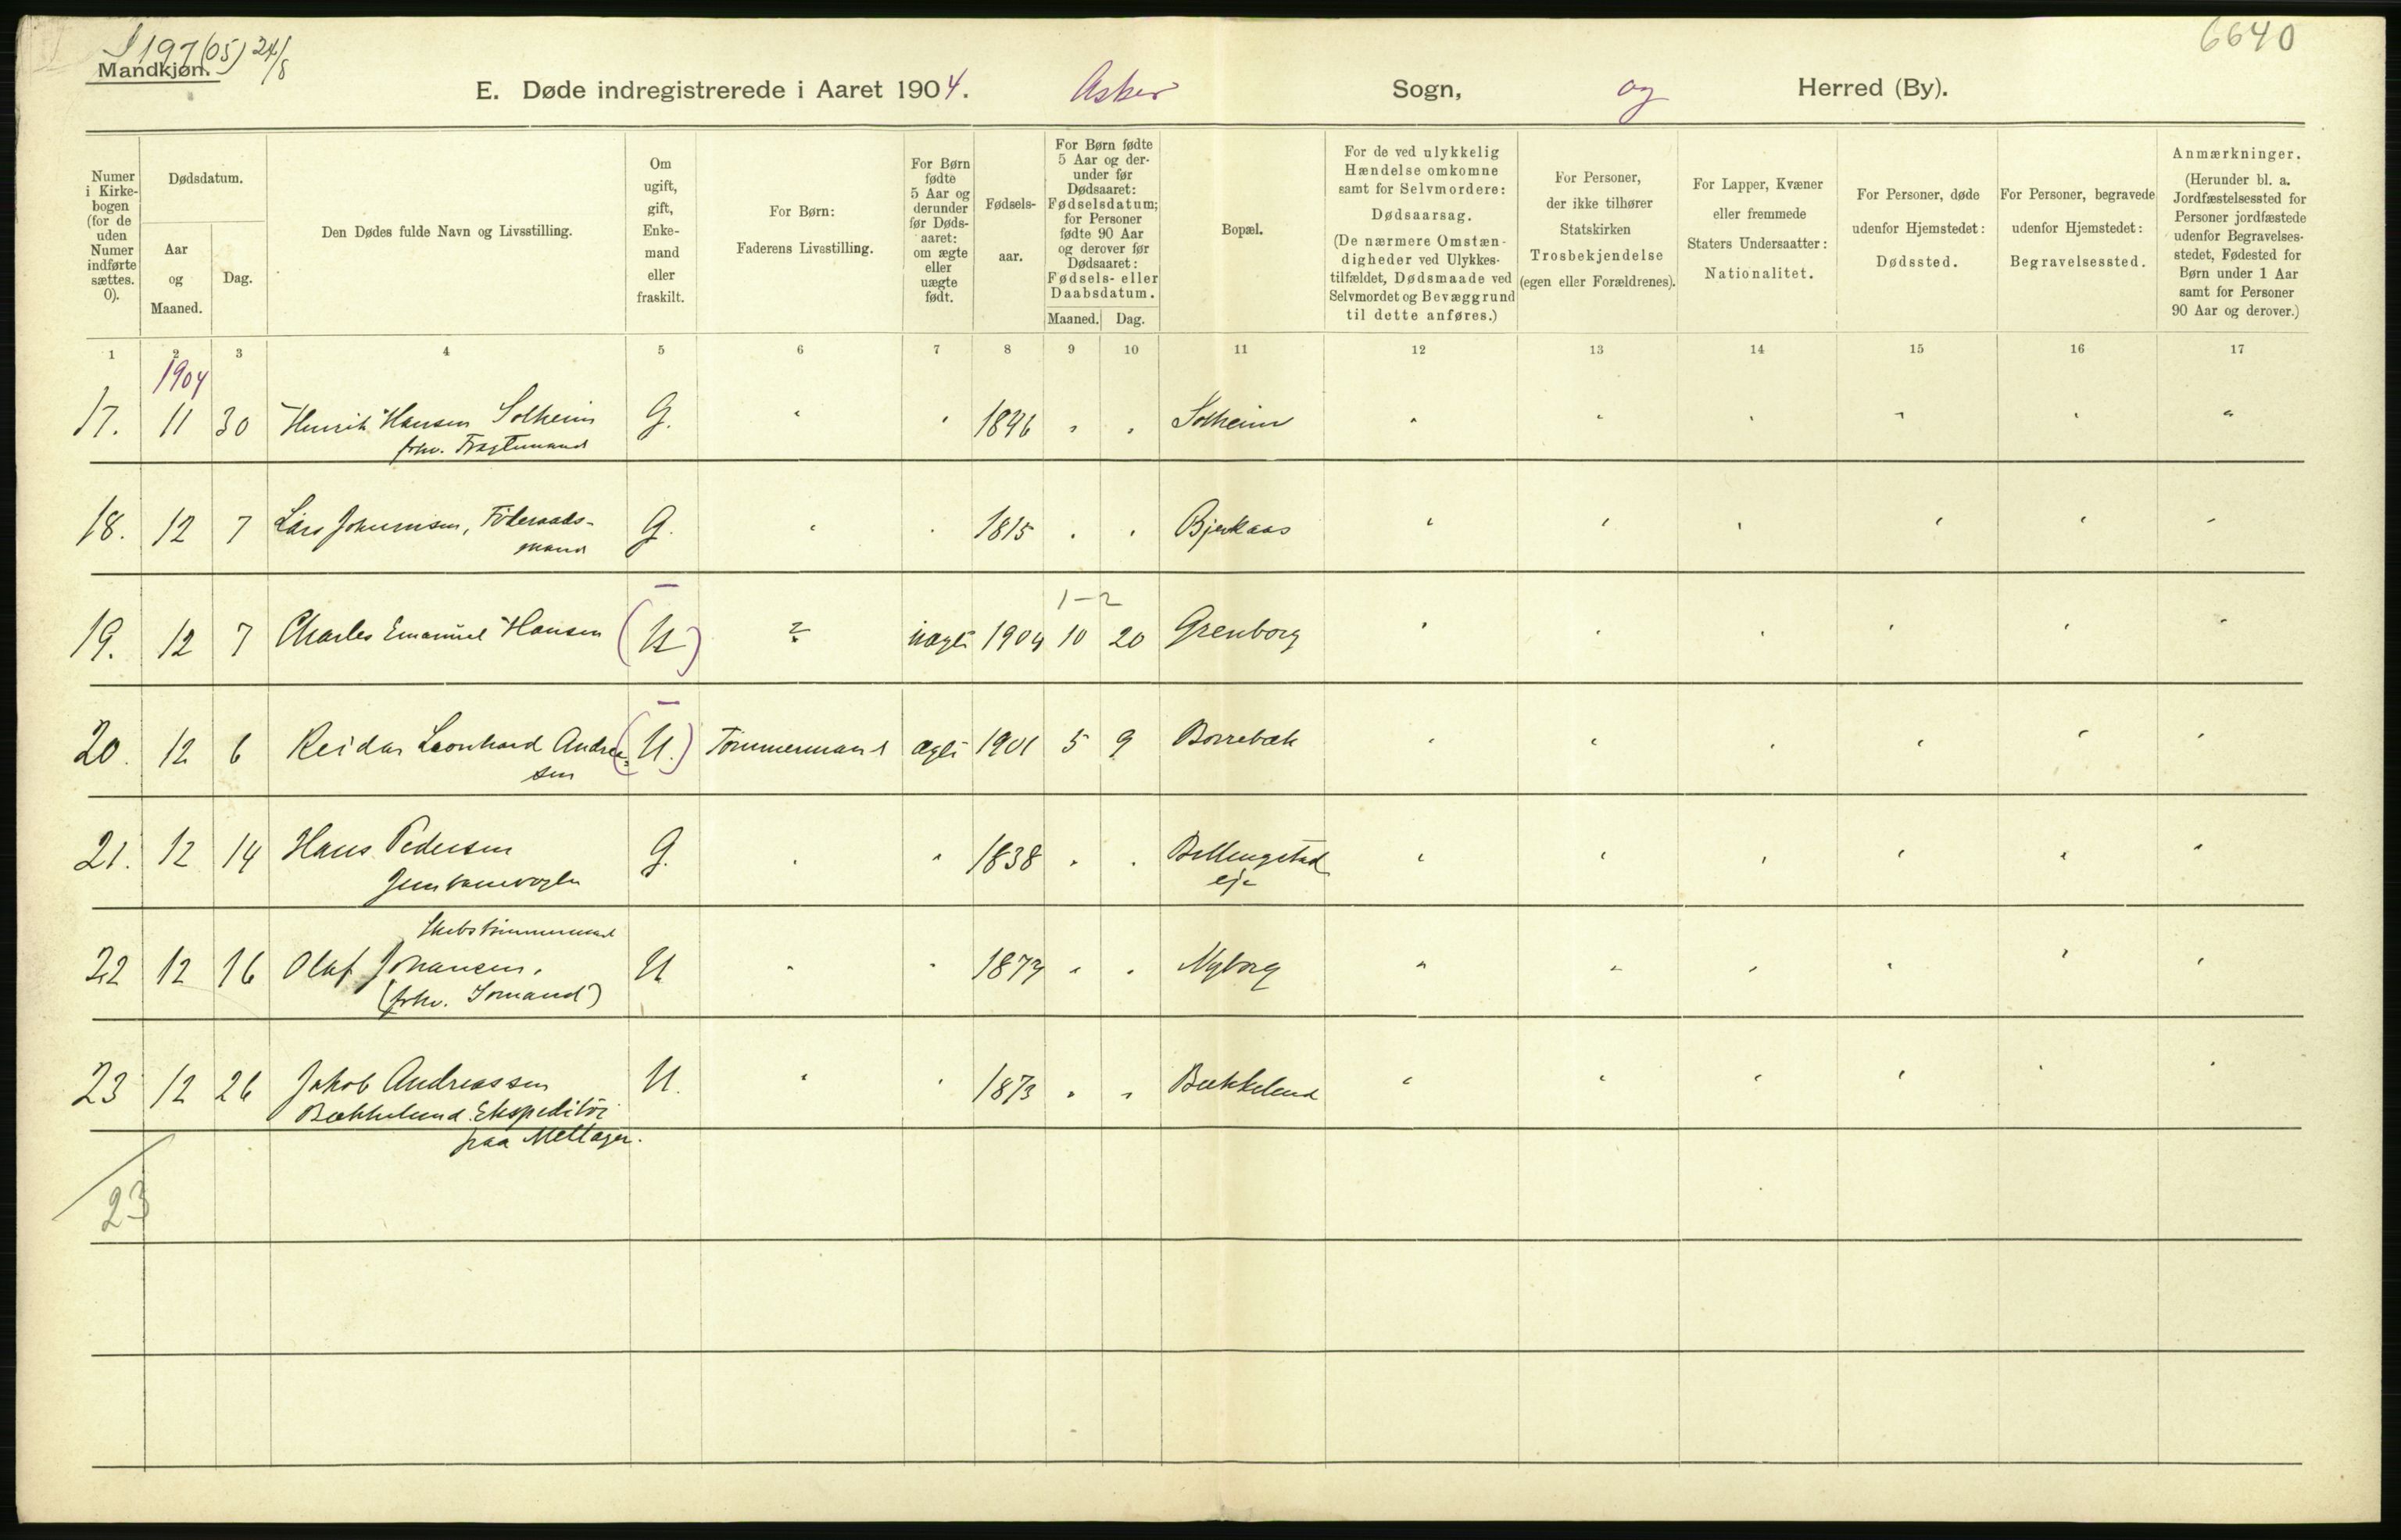 S 197 (05) 24/8
6640
Mandkjøn.
E. Døde indregistrerede i Aaret 1904. Asker Sogn, og Herred (By).
Numer i Kirkebogen (for de uden Numer indførte sættes. 0).
Dødsdatum.
Aar og Maaned.
Dag.
Den Dødes fulde Navn og Livsstilling.
Om ugift, gift, Enkemand eller fraskilt.
For Børn: Faderens Livsstilling.
For Børn fødte 5 Aar og derunder før Dødsaaret: om ægte eller uægte født.
Fødselsaar.
For Børn fødte 5 Aar og derunder før Dødsaaret: Fødselsdatum; for Personer fødte 90 Aar og derover før Dødsaaret: Fødsels- eller Daabsdatum.
Maaned. Dag.
Bopæl.
For de ved ulykkelig Hændelse omkomne samt for Selvmordere: Dødsaarsag. (De nærmere Omstændigheder ved Ulykkestilfældet, Dødsmaade ved Selvmordet og Bevæggrund til dette anføres.)
For Personer, der ikke tilhører Statskirken Trosbekjendelse (egen eller Forældrenes).
For Lapper, Kvæner eller fremmede Staters Undersaatter: Nationalitet.
For Personer, døde udenfor Hjemstedet: Dødssted.
For Personer, begravede udenfor Hjemstedet: Begravelsessted.
Anmærkninger. (Herunder bl. a. Jordfæstelsessted for Personer jordfæstede udenfor Begravelsesstedet, Fødested for Børn under 1 Aar samt for Personer 90 Aar og derover.)
1 2 3 4 5 6 7 8 9 10 11 12 13 14 15 16 17
1904
17. 11 30 Henrik Hansen Solheim G. " " 1846 " " Solheim " " " " " "
frhv. Fragtemand
18. 12 7 Lars Johannsen, Föderaads- G. " " 1815 " " Bjerkaas " " " " " "
mand
1-2
19. 12 7 Charles Emanuel Hansen (U) ? uægte 1904 10 20 Grenborg " " " " " "
20. 12 6 Reidar Leonhard Andrea- (U.) Tömmermand ægte 1901 5 9 Borrebæk " " " " " "
sen
21. 12 14 Hans Pedersen G. " " 1838 " " Billengstad " " " " " "
Jernbanevogter eje
Skibstömmermand
22 12 16 Olaf Johansen. U " " 1874 " " Nyborg " " " " " "
(frhv. Sömand)
23 12 26 Jakob Andreassen U. " " 1873 " " Bækkelund " " " " " "
Bækkelund Ekspeditör
paa Meltager.
23